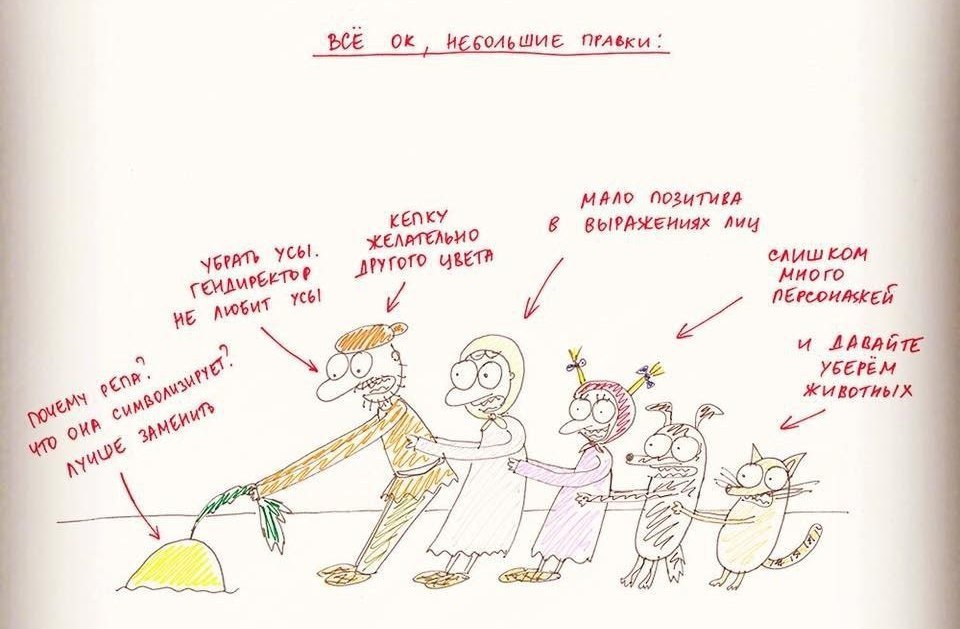 ВСЁ ОК, НЕБОЛЬШИЕ ПРАВКИ:
ПОЧЕМУ РЕПА?
ЧТО ОНА СИМВОЛИЗИРУЕТ?
ЛУЧШЕ ЗАМЕНИТЬ
УБРАТЬ УСЫ.
ГЕНДИРЕКТОР
НЕ ЛЮБИТ УСЫ
КЕПКУ
ЖЕЛАТЕЛЬНО
ДРУГОГО ЦВЕТА
МАЛО ПОЗИТИВА
В ВЫРАЖЕНИЯХ ЛИЦ
СЛИШКОМ
МНОГО
ПЕРСОНАЖЕЙ
И ДАВАЙТЕ
УБЕРЁМ
ЖИВОТНЫХ